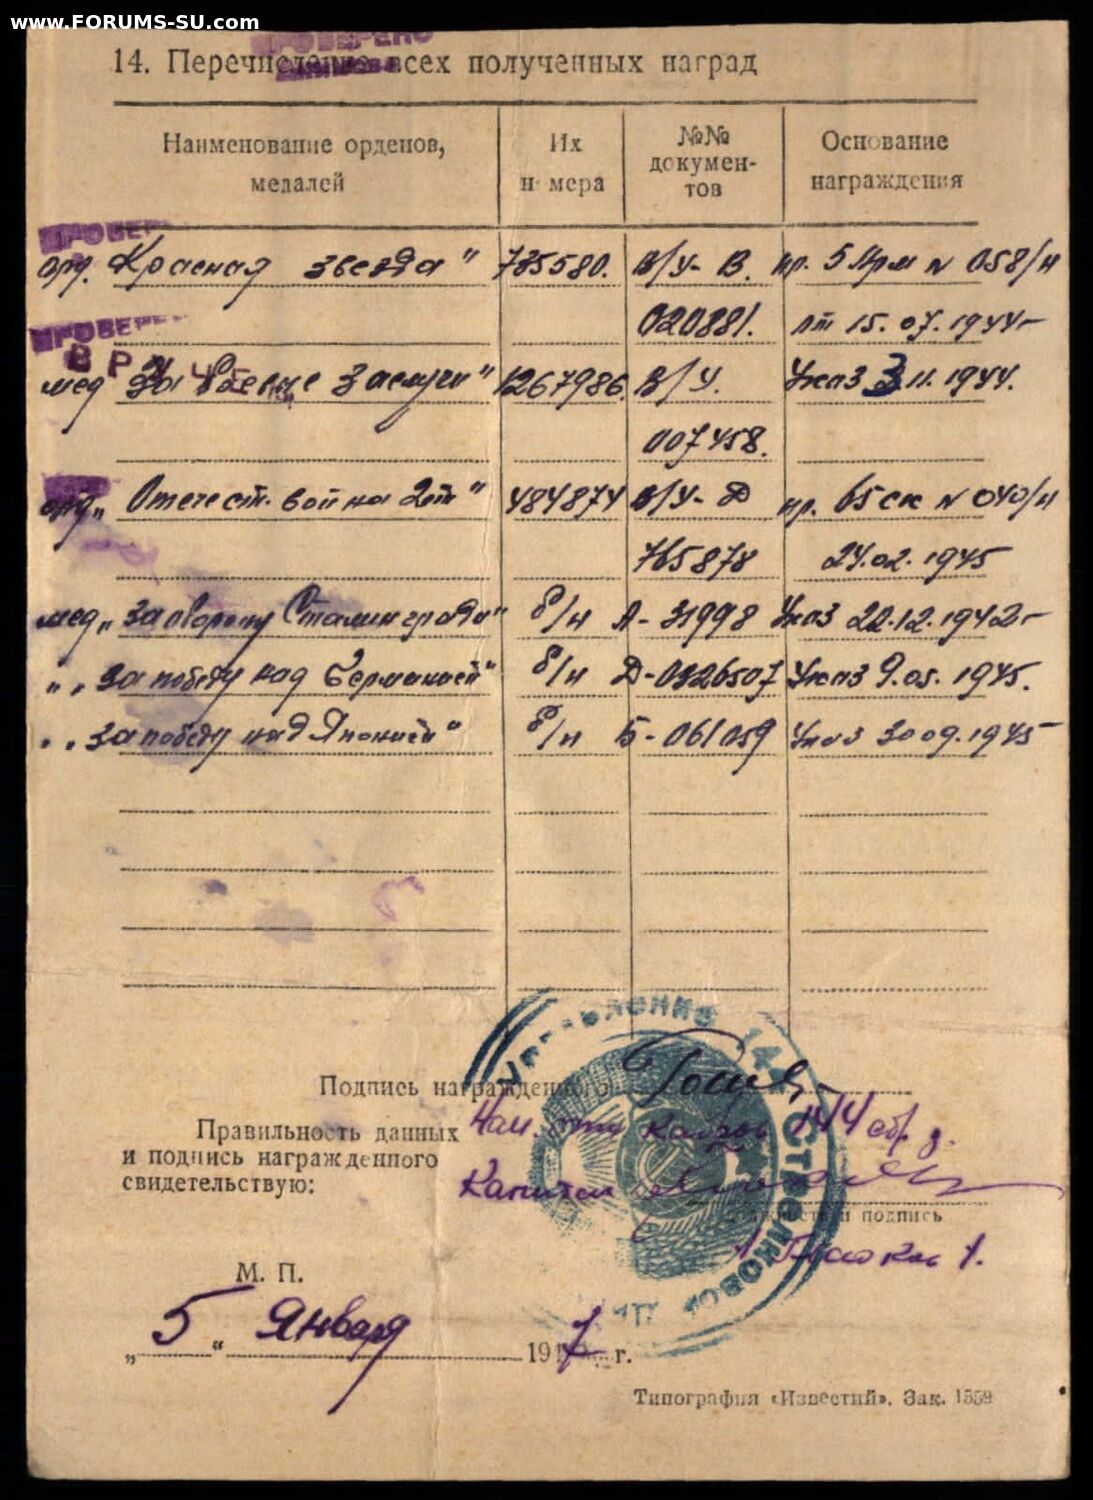 www.FORUMS-SU.com
ПРОВЕРЕНО
14. Перечисление всех полученных наград
Наименование орденов, медалей
Их номера
№№ документов
Основание награждения
ПРОВЕРЕ
орд. Красная звезда" 785580. В/У- В. пр. 5 Арм N 058/н
020881. от 15.07.1944-
ПРОВЕРЕ
мед За Боевые Заслуги" 1267986. В/У. Указ 3 11.1944.
007458.
орд„ Отечест. война 2 ст" 484874 В/У- Д пр. 65 ск N 040/н
765878 24.02.1945
мед„ За оборону Сталинграда" б/н А- 31998 Указ 22.12.1942-
„ „ За победу над Германией" б/н Д-0326507 Указ 9.05.1945.
„ „ За победу над Японией" б/н Б-061059 Указ 30 09.1945-
Подпись награжденного
Правильность данных
и подпись награжденного
свидетельствую:
Нач. отд кадров
Капитан
должность и подпись
УПРАВЛЕНИЕ 144 СТРЕЛКОВОЙ
М. П.
„ 5 " Января 1947 г.
Типография «Известий». Зак. 1559